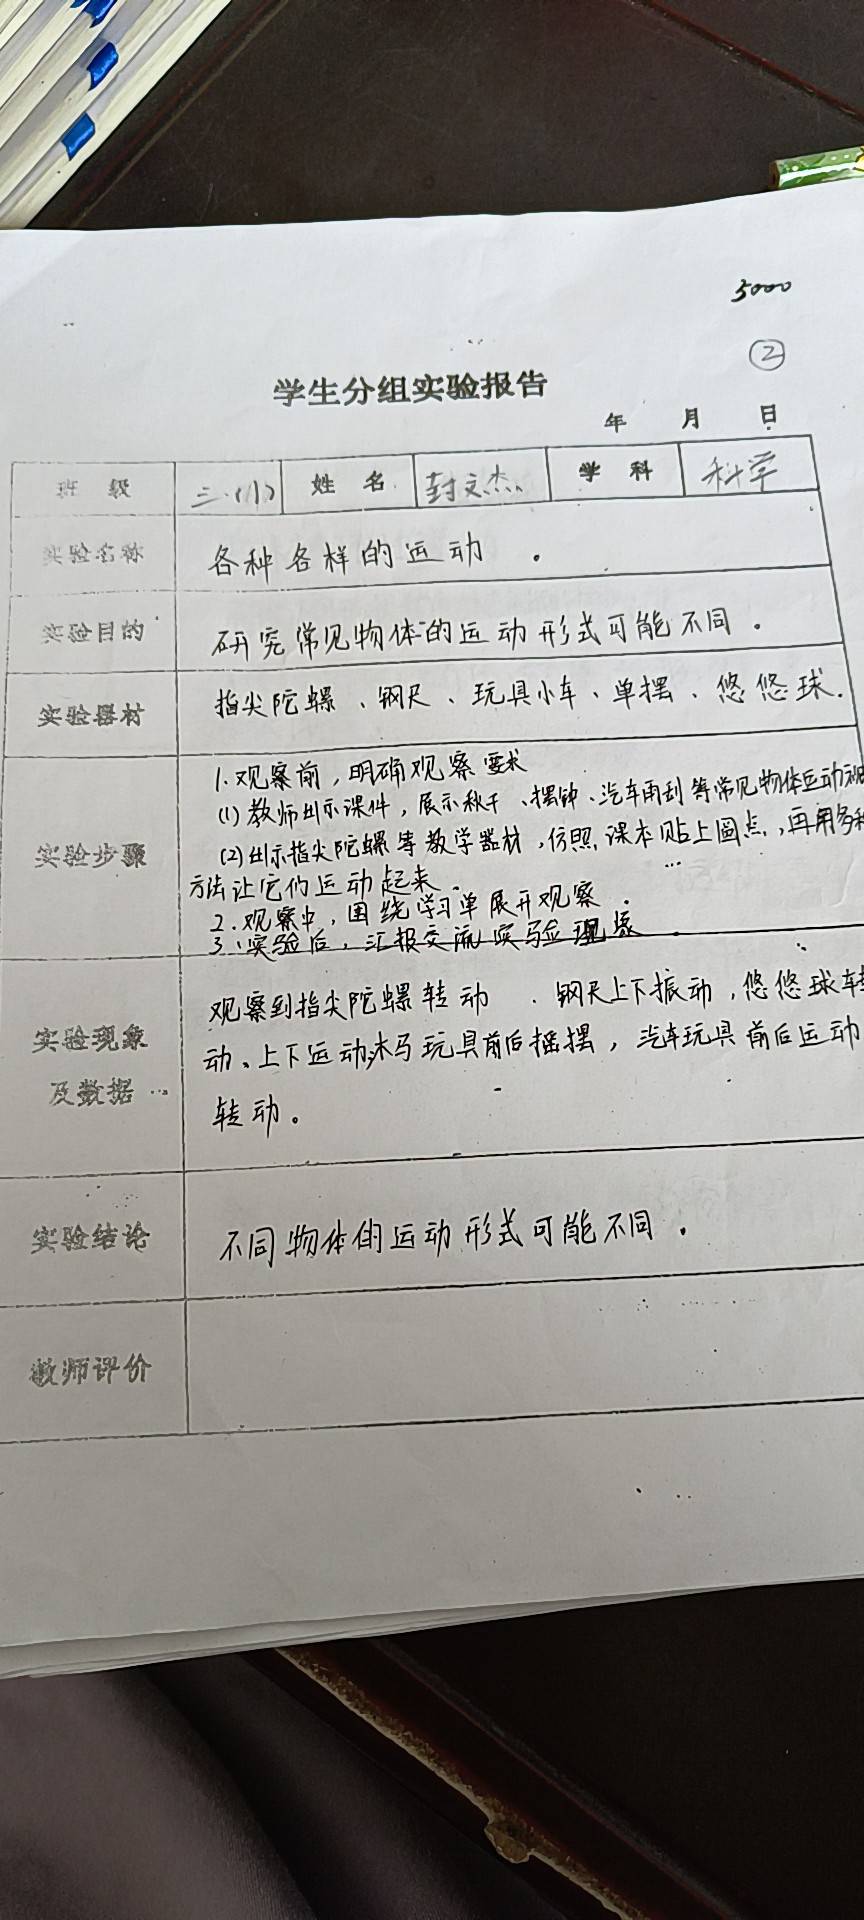 5000
②
学生分组实验报告
年 月 日
班 级 三.(1) 姓 名 封文杰 学 科 科学
实验名称 各种各样的运动 。
实验目的 研究常见物体的运动形式可能不同。
实验器材 指尖陀螺、钢尺、玩具小车、单摆、悠悠球.
实验步骤
1.观察前,明确观察要求
(1)教师出示课件,展示秋千、摆钟、汽车雨刮等常见物体运动视
(2)出示指尖陀螺等教学器材,仿照课本贴上圆点,再用多种
方法让它们运动起来。
2.观察中,围绕学习单展开观察。
3.实验后,汇报交流实验现象。
实验现象及数据
观察到指尖陀螺转动、钢尺上下振动,悠悠球转
动、上下运动,木马玩具前后摇摆,汽车玩具前后运动
转动。
实验结论 不同物体的运动形式可能不同。
教师评价